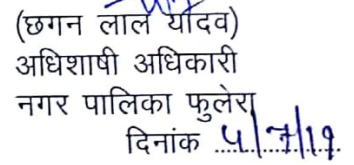 (छगन लाल यादव)
अधिशाषी अधिकारी
नगर पालिका फुलेरा
दिनांक 4/7/19